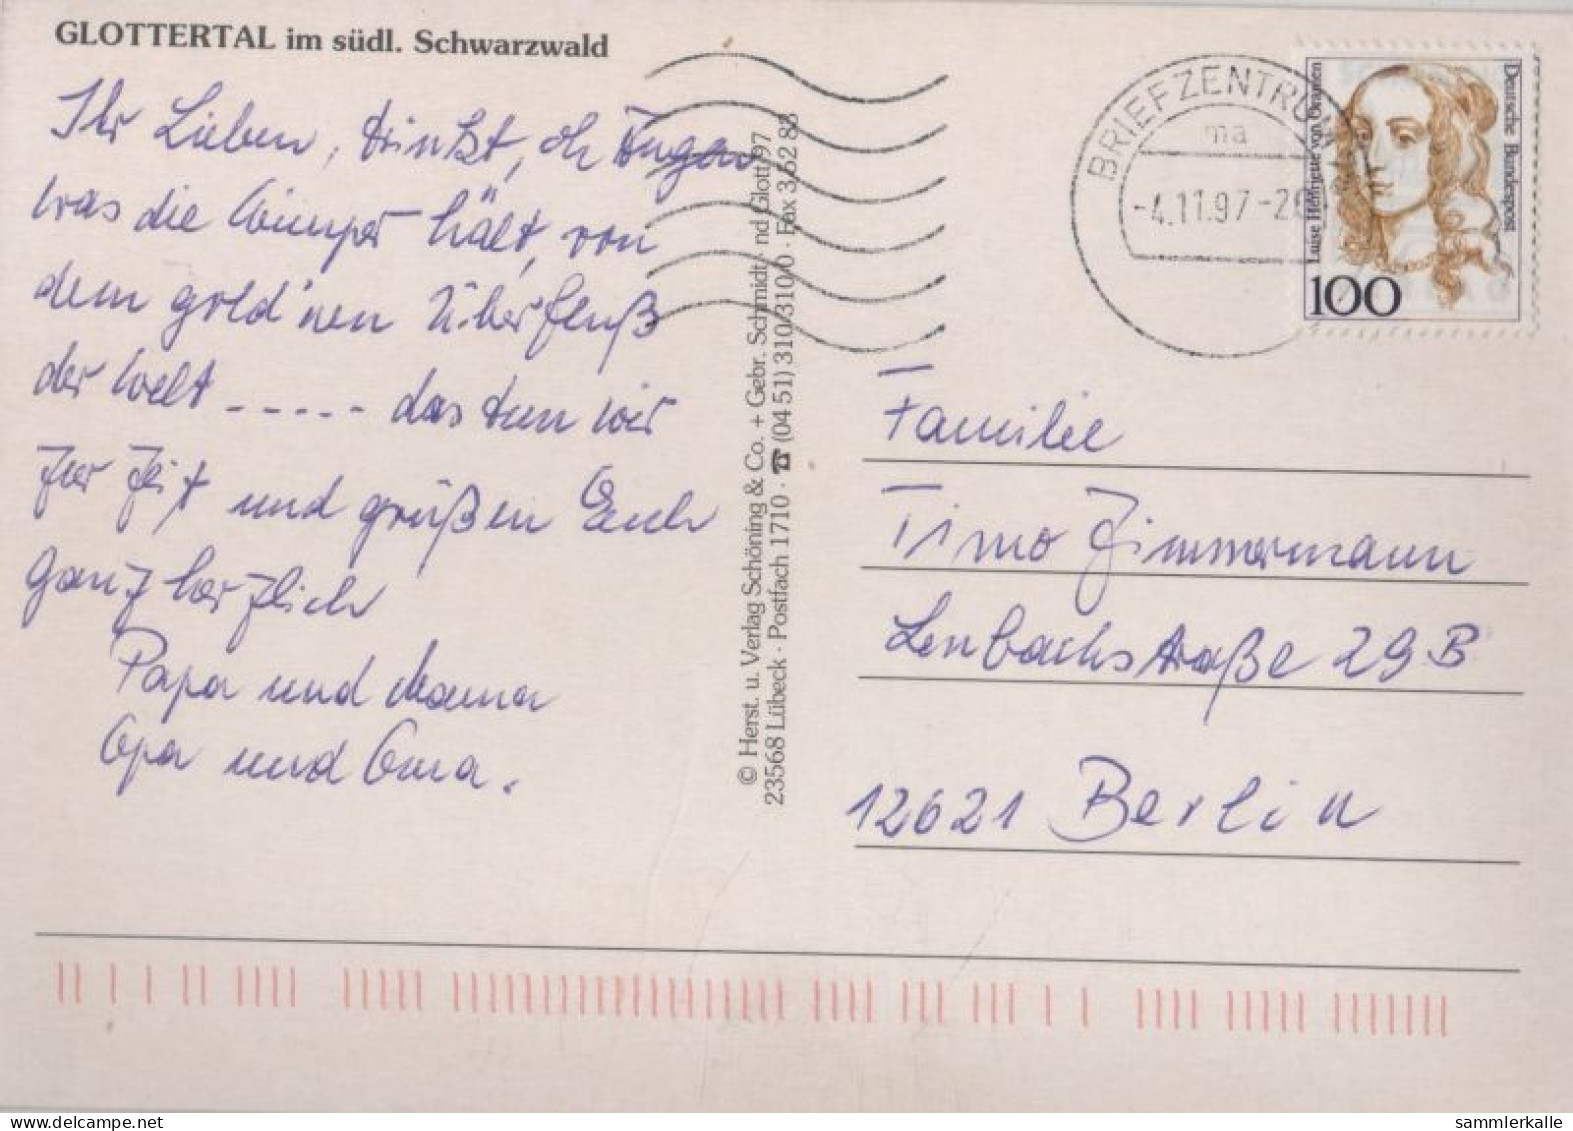 GLOTTERTAL im südl. Schwarzwald
Ihr Lieben, trinkt, oh Augen
was die Wimper hält, von
dem gold'nen Überfluß
der Welt ----- das tun wir
zur Zeit und grüßen Euch
ganz herzlich
Papa und Mama
Opa und Oma.
© Herst. u. Verlag Schöning & Co. + Gebr. Schmidt · nd Glott/97
23568 Lübeck · Postfach 1710 · ☎ (04 51) 310/310/0 · Fax 3 62 83
BRIEFZENTRUM
ma
-4.11.97-20
Luise Henriette von Oranien
Deutsche Bundespost
100
Familie
Timo Zimmermann
Lenbachstraße 29 B
12621 Berlin
sammlerkalle